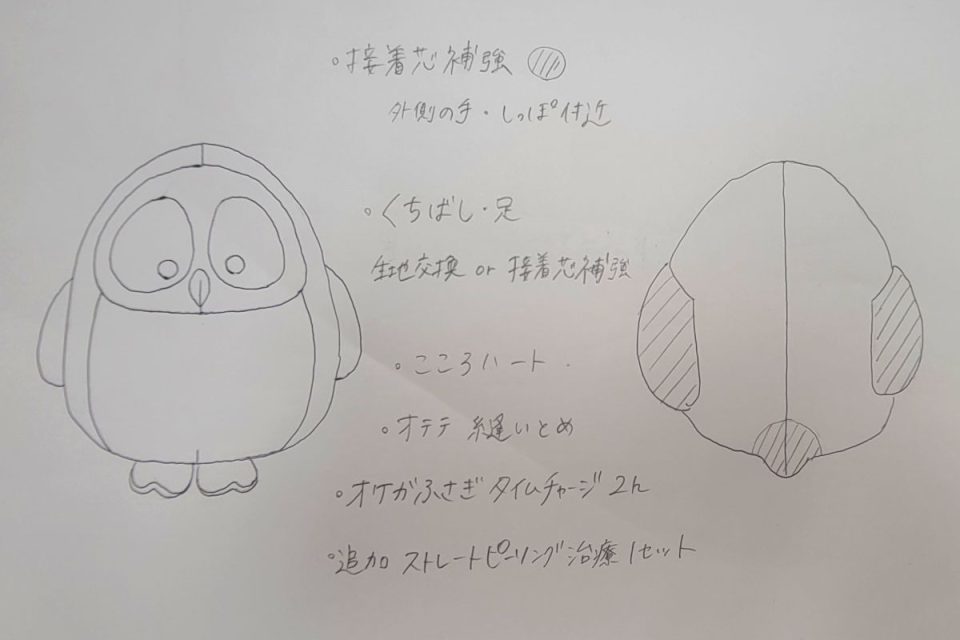 ・接着芯補強
外側の手・しっぽ付近
・くちばし・足
生地交換 or 接着芯補強
・こころハート
・オテテ 糸縫いとめ
・オケガふさぎ タイムチャージ 2h
・追加 ストレートピーリング治療 1セット